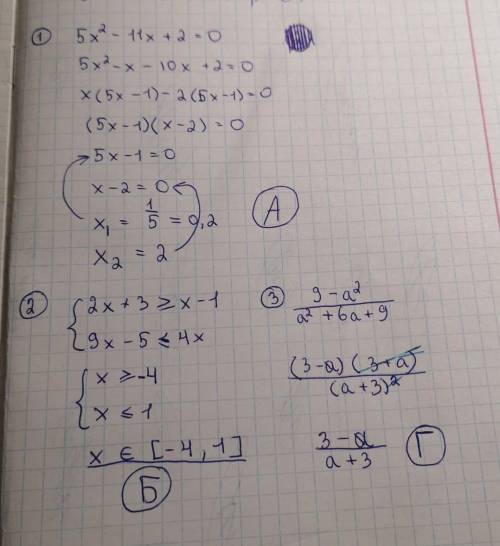 ① 5x² - 11x + 2 = 0
5x² - x - 10x + 2 = 0
x(5x - 1) - 2(5x - 1) = 0
(5x - 1)(x - 2) = 0
5x - 1 = 0
x - 2 = 0
x₁ = 1/5 = 0,2
x₂ = 2
А
② { 2x + 3 ≥ x - 1
9x - 5 ≤ 4x
{ x ≥ -4
x ≤ 1
x ∈ [-4, 1]
Б
③ (9 - a²)/(a² + 6a + 9)
((3 - a)(3 + a))/((a + 3)²)
(3 - a)/(a + 3)
Г